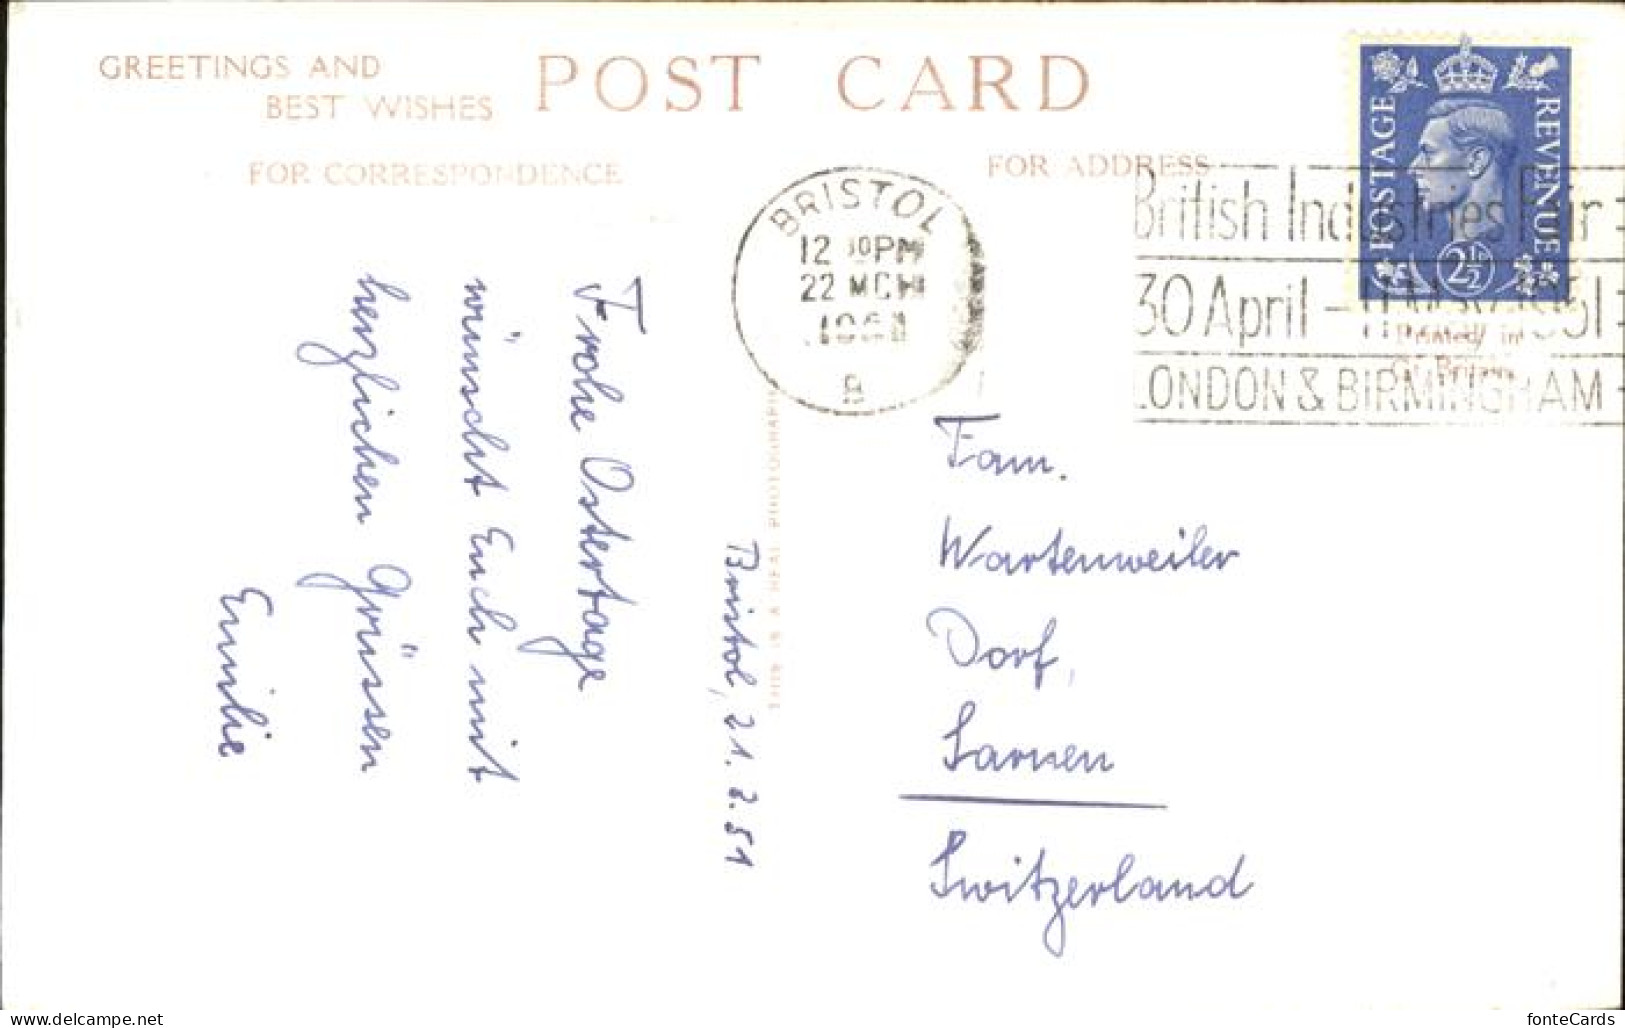 GREETINGS AND
BEST WISHES
POST CARD
FOR CORRESPONDENCE
FOR ADDRESS
POSTAGE
REVENUE
2½
BRISTOL
12 PM
22 MCH
B
British Industries Fair
30 April – 11 May 1951
LONDON & BIRMINGHAM
Printed in
Gt. Britain
THIS IS A REAL PHOTOGRAPH
Bristol, 21.3.51
Frohe Ostertage
wünscht Euch mit
herzlichen Grüssen
Emilie
Fam.
Wartenweiler
Dorf,
Sarnen
Switzerland
fonteCards
www.delcampe.net